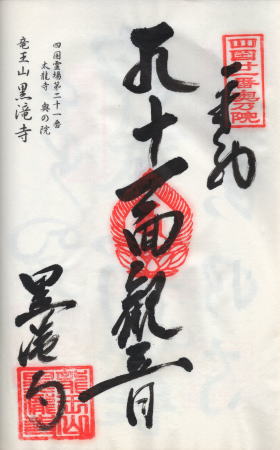 四国廿一番奥乃院
奉納
十一面観音
黒滝寺
四国霊場第二十一番
太龍寺 奥の院
竜王山 黒滝寺